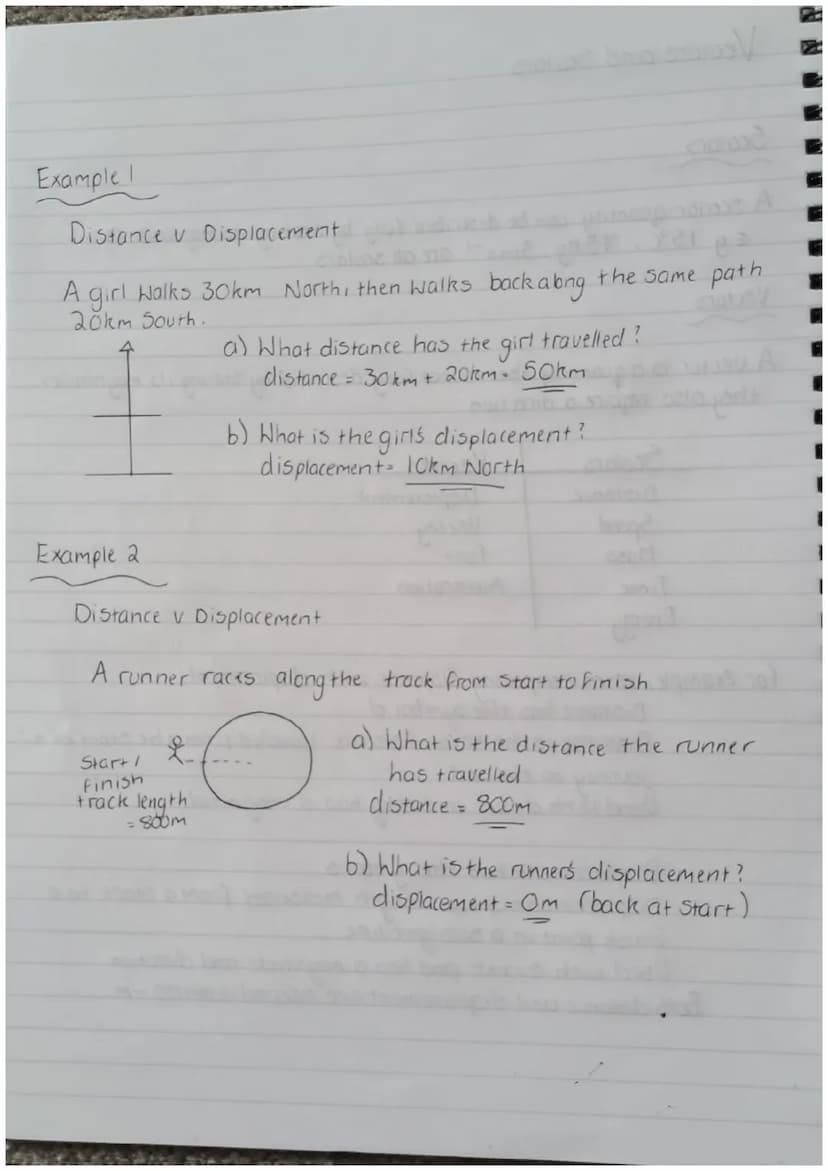 Example 1
Distance v Displacement
A girl walks 30km North, then walks back along the same path
20km South.
a) What distance has the girl travelled?
distance = 30km + 20km = 50km
b) What is the girl's displacement?
displacement = 10km North
Example 2
Distance v Displacement
A runner races along the track from start to finish
Start /
finish
track length
= 800m
a) What is the distance the runner
has travelled
distance = 800m
b) What is the runner's displacement?
displacement = 0m (back at start)